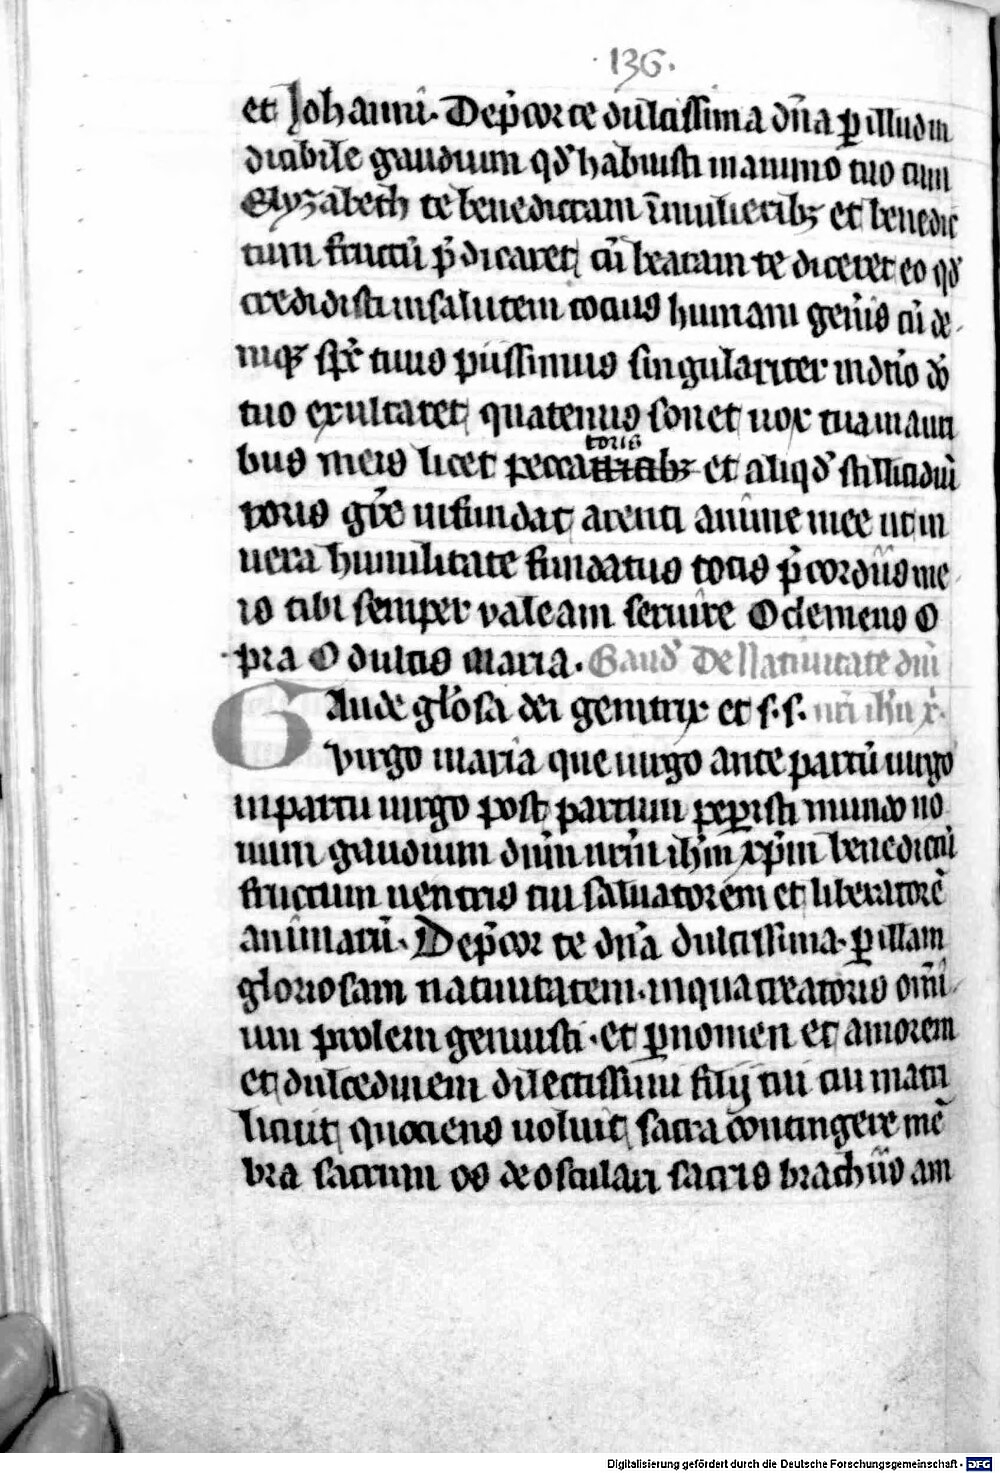 ·136·
et Johanni. Dep̄cor te dulcissima dn̄a ꝑ illud in
dicibile gaudium qd̓ habuisti in animo tuo cum
Elyzabeth te benedictam ī mulieribꝫ et benedic
tum fructū p̄dicaret cū beatam te diceret eo qd̓
credidisti in salutem tocius humani gen̄is cū de
niqꝫ sp̄c tuus piissimus singulariter in dn̄o dō
tuo exultaret quatenus sonet uox tua in auri
bus meis licet peccatoris et aliqd̓ stillicidiū
roris gr̄e infundat arenti anime mee ut in
uera humilitate fundatus totis p̄cordiis me
is tibi semper valeam seruire O clemens O
pia O dulcis maria. Gaud̓ De Natiuitate dn̄i
Gaude gl̓osa dei genitrix et s. s. nr̄i ih̄u x̄.
virgo maria que uirgo ante partū uirgo
in partu uirgo post partum peꝑisti mundo no
uum gaudium dn̄m nr̄m ih̄m xp̄m benedictū
fructum uentris tui saluatorem et liberatorē
animarū. Dep̄cor te dn̄a dulcissima. ꝑ illam
gloriosam natiuitatem. in qua creatoris om̄i
um prolem genuisti. et ꝑ nomen et amorem
et dulcedinem dilectissimi filij tui cui mat̄i
licuit quociens uoluit sacra contingere mē
bra sacrum os deosculari sacris brachiis am
Digitalisierung gefördert durch die Deutsche Forschungsgemeinschaft - DFG